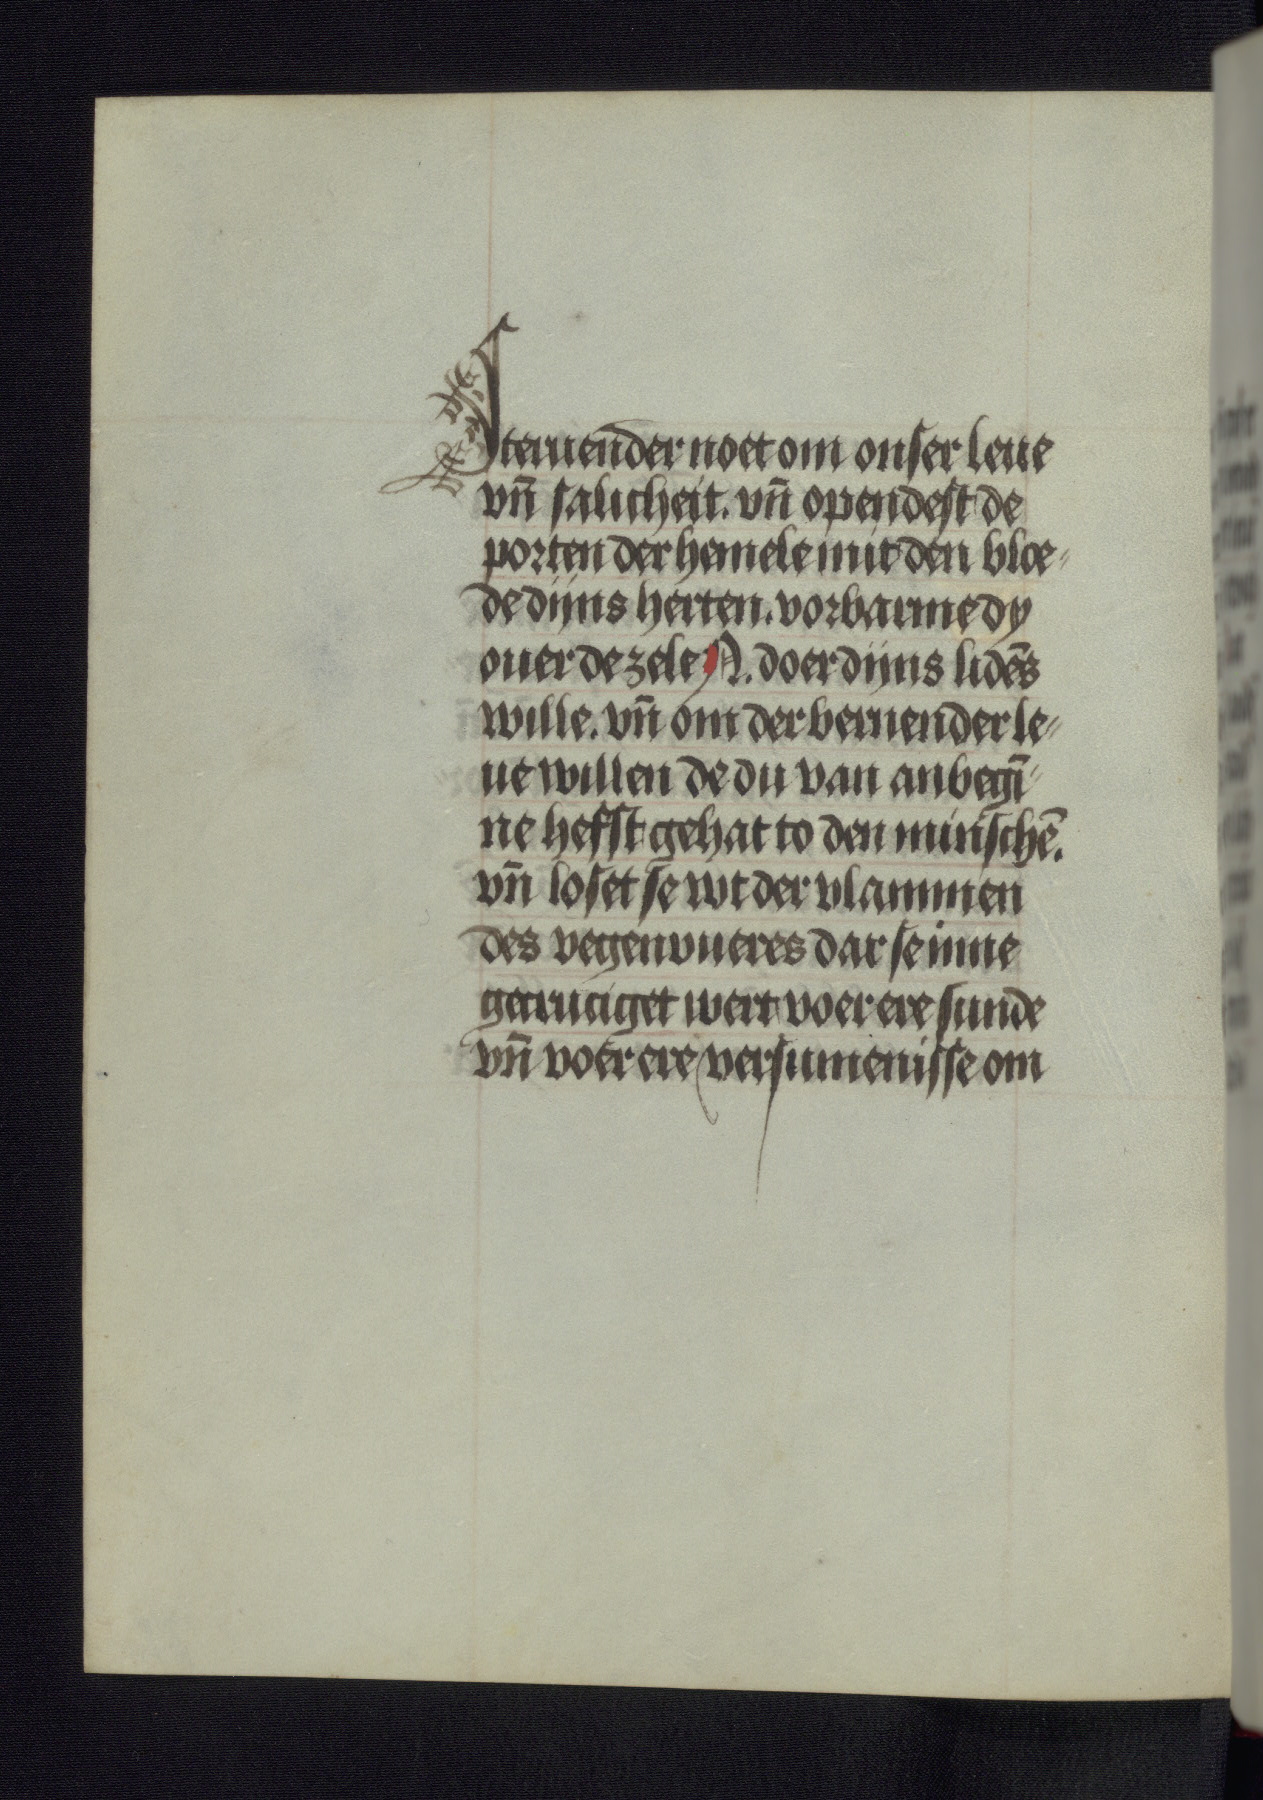 steruender noet om onser leue
vn̄ salicheit. vn̄ opendest de
porten der hemele mit den bloe-
de dijns herten. vorbarme dy
ouer de zele N. doer dijns lidēs
wille. vn̄ om der bernender le-
ue willen de du van anbegī-
ne hefst gehat to den minschē.
vn̄ loset se wt der vlammen
des vegenvueres dar se inne
gecruciget wert voer ere sunde
vn̄ voer ere versumenisse om